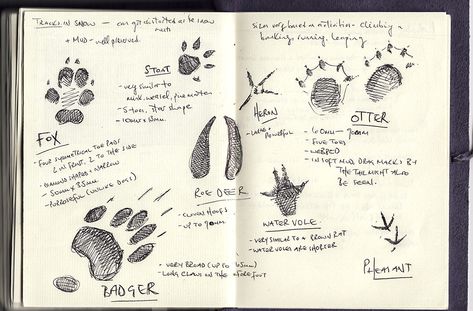 TRACKS IN SNOW — can get distorted as the snow melts
+ MUD - well preserved.
STOAT
- very similar to
mink, weasel, pine marten
- 5 toes, star shape
FOX
- FOUR SYMMETRICAL TOE PADS
2 IN FRONT, 2 TO THE SIDE
- DIAMOND SHAPED + NARROW
- 50mm x 35mm
- PURPOSEFUL (UNLIKE DOGS)
ROE DEER
- CLOVEN HOOFS
- UP TO
BADGER
- VERY BROAD (UP TO 65mm)
- LONG CLAWS ON THE FOREFOOT
Sizes vary based on activities - climbing,
running, leaping
HERON
- LARGE +
POWERFUL
OTTER
- FIVE TOES
- WEBBED
- IN SOFT MUD DRAG MARKS BY
THE TAIL MIGHT ALSO
BE SEEN.
WATER VOLE
- VERY SIMILAR TO A BROWN RAT
- WATER VOLES ARE SHORTER
PHEASANT